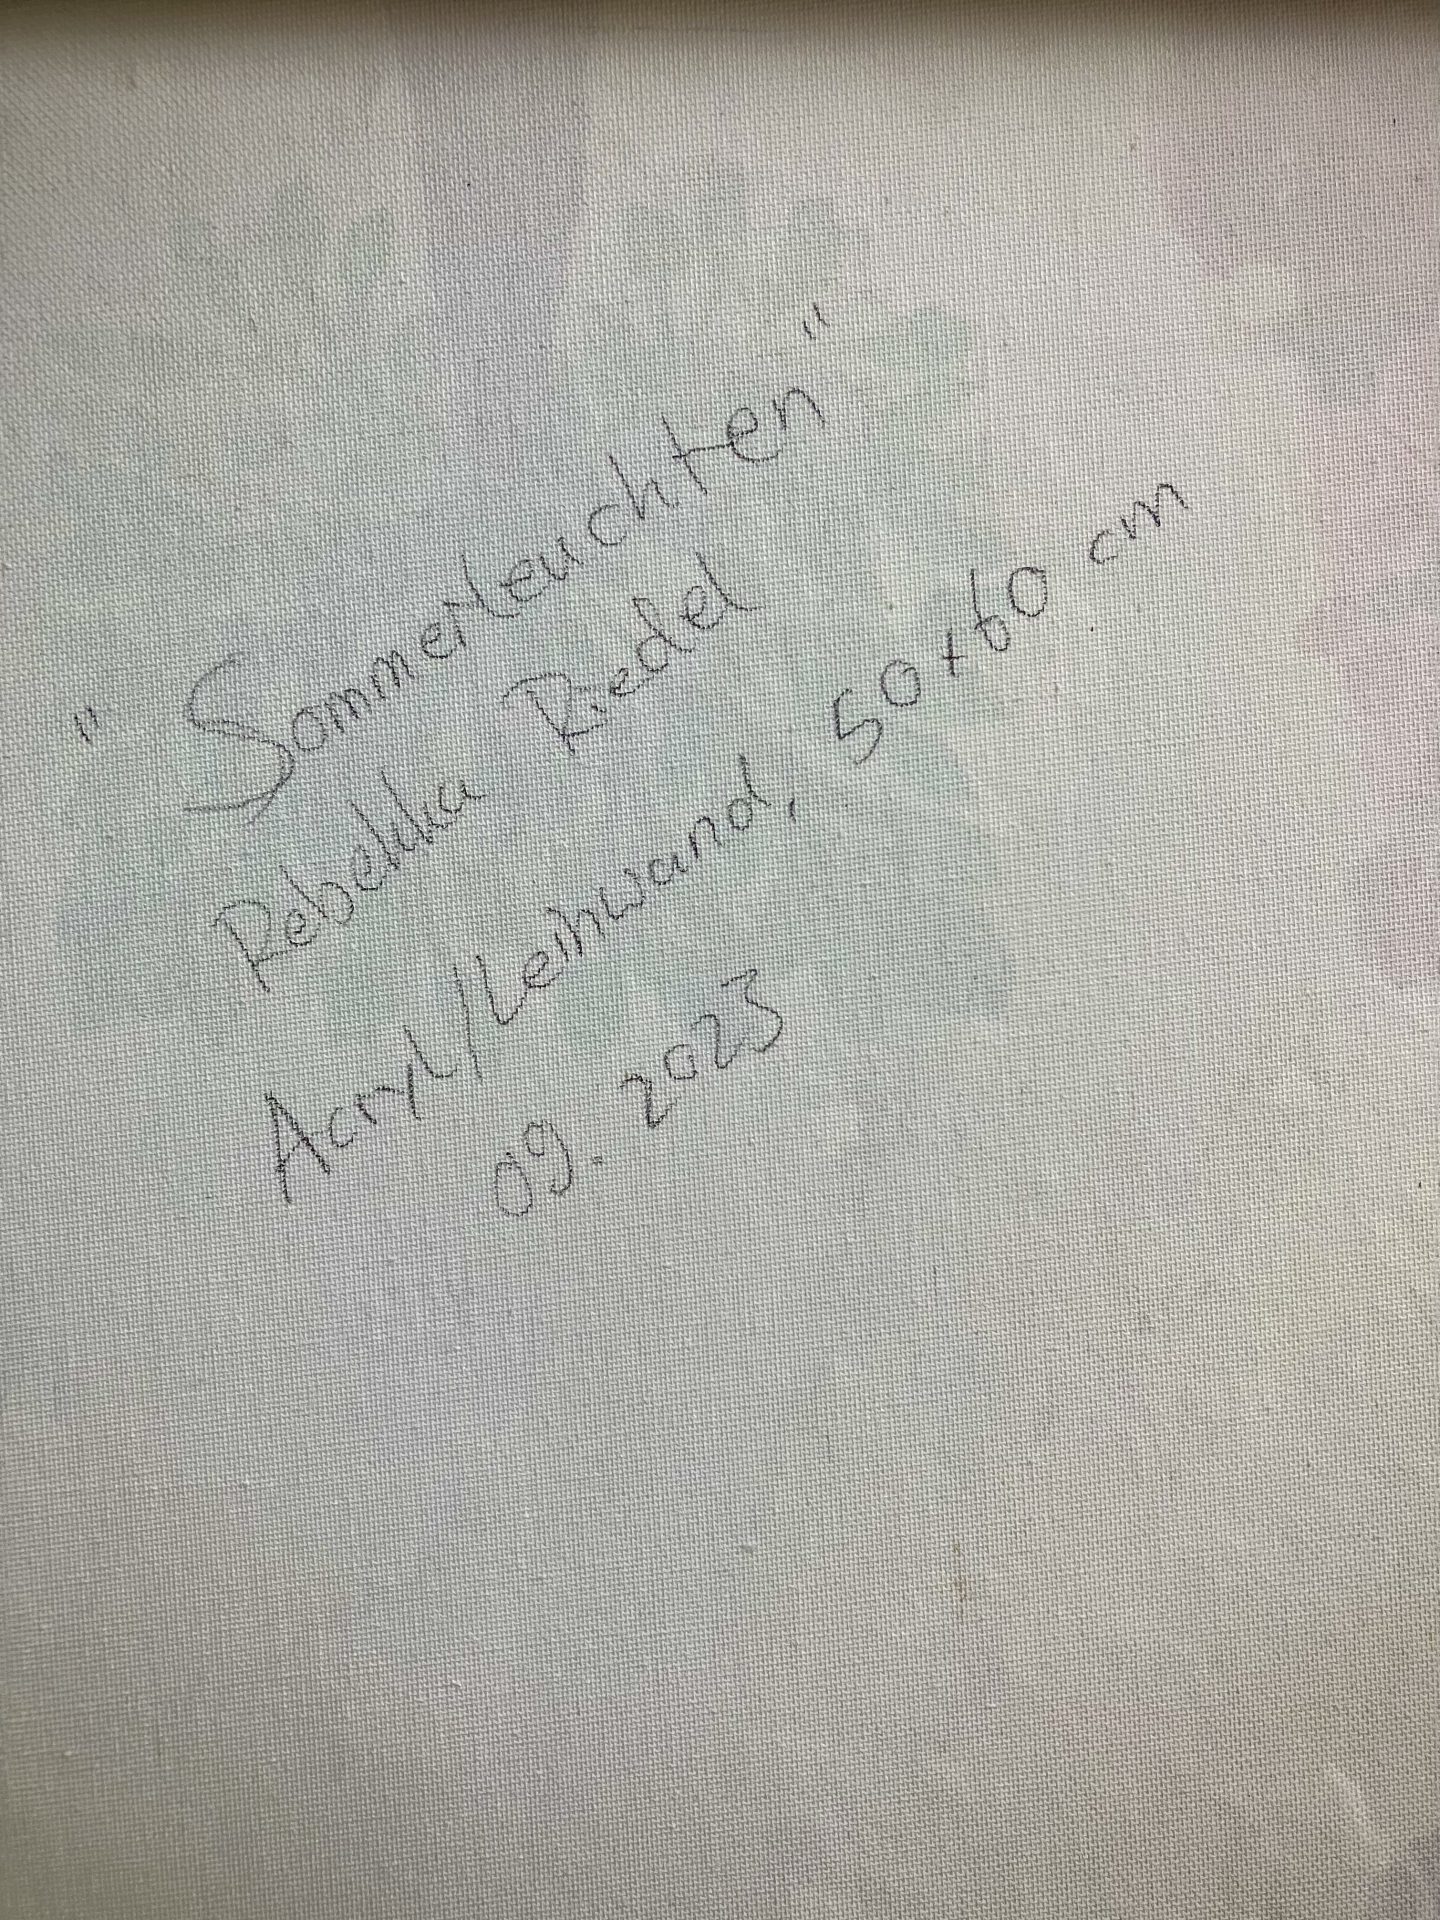 "Sommerleuchten"
Rebekka Riedel
Acryl/Leinwand, 50x60 cm
09.2023